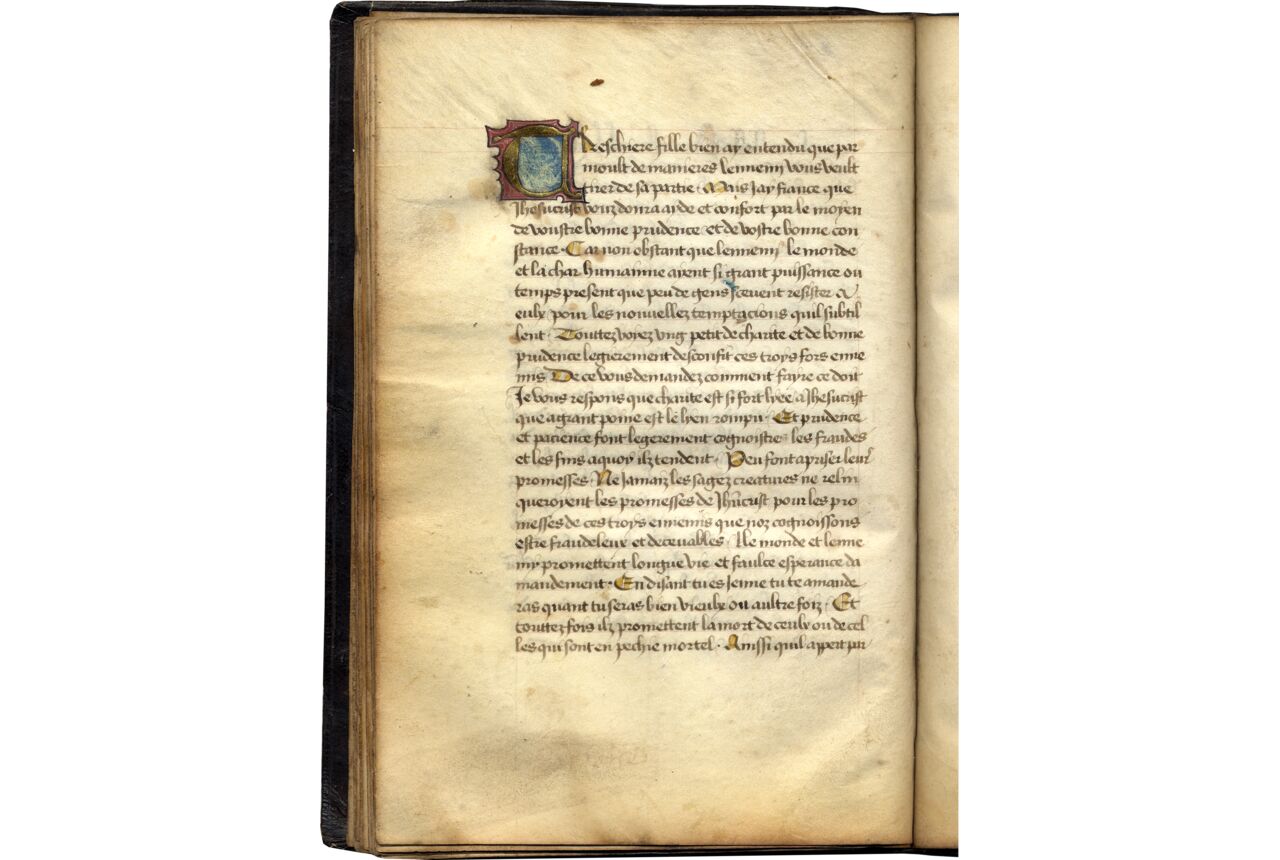 Treschiere fille bien ay entendu que par
moult de manieres lennemi vous veult
tirer de sa partie Mais Jay fiance que
Jhesucrist vouz donra aide et confort par le moyen
de voustre bonne prudence et de vostre bonne con
stance Car non obstant que lennemi le monde
et la char humainne ayent si grant puissance ou
temps present que peu de gens scevent resister a
eulx pour les nouvellez temptacions quil subtil
lent Touttez voyez ung petit de charite et de bonne
prudence legierement desconfit ces troys fors enne
mis De ce vous demandez comment fayre ce doit
Je vous respons que charite est si fort lyee a Jhesucrist
que a grant poine est le lyen rompu Et prudence
et pacience font legerement cognoistre les fraudes
et les fins a quoy ilz tendent Peu font a priser leurs
promesses Ne Jamaiz les sagez creatures ne relin
queroyent les promesses de Jhucrist pour les pro
messes de ces troys ennemis que noz cognoissons
estre fraudeleux et decevables Ne monde et lenne
my promettent longue vie et faulce esperance da
mandement En disant tu es Jenne tu te amande
ras quant tu seras bien vieulx ou aultre foiz Et
touttez fois ilz promettent la mort de ceulx ou de cel
les qui sont en pechie mortel Ainssi quil appert par